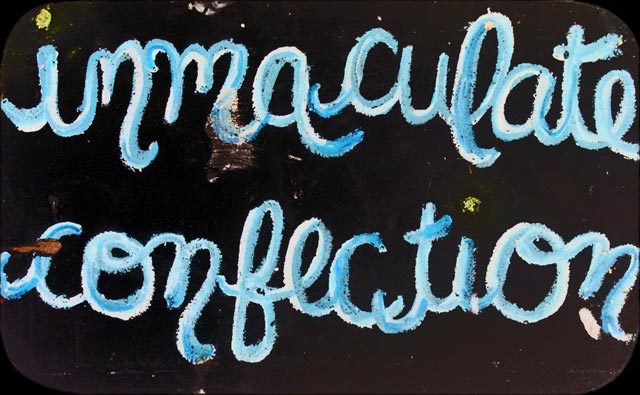 immaculate
confection